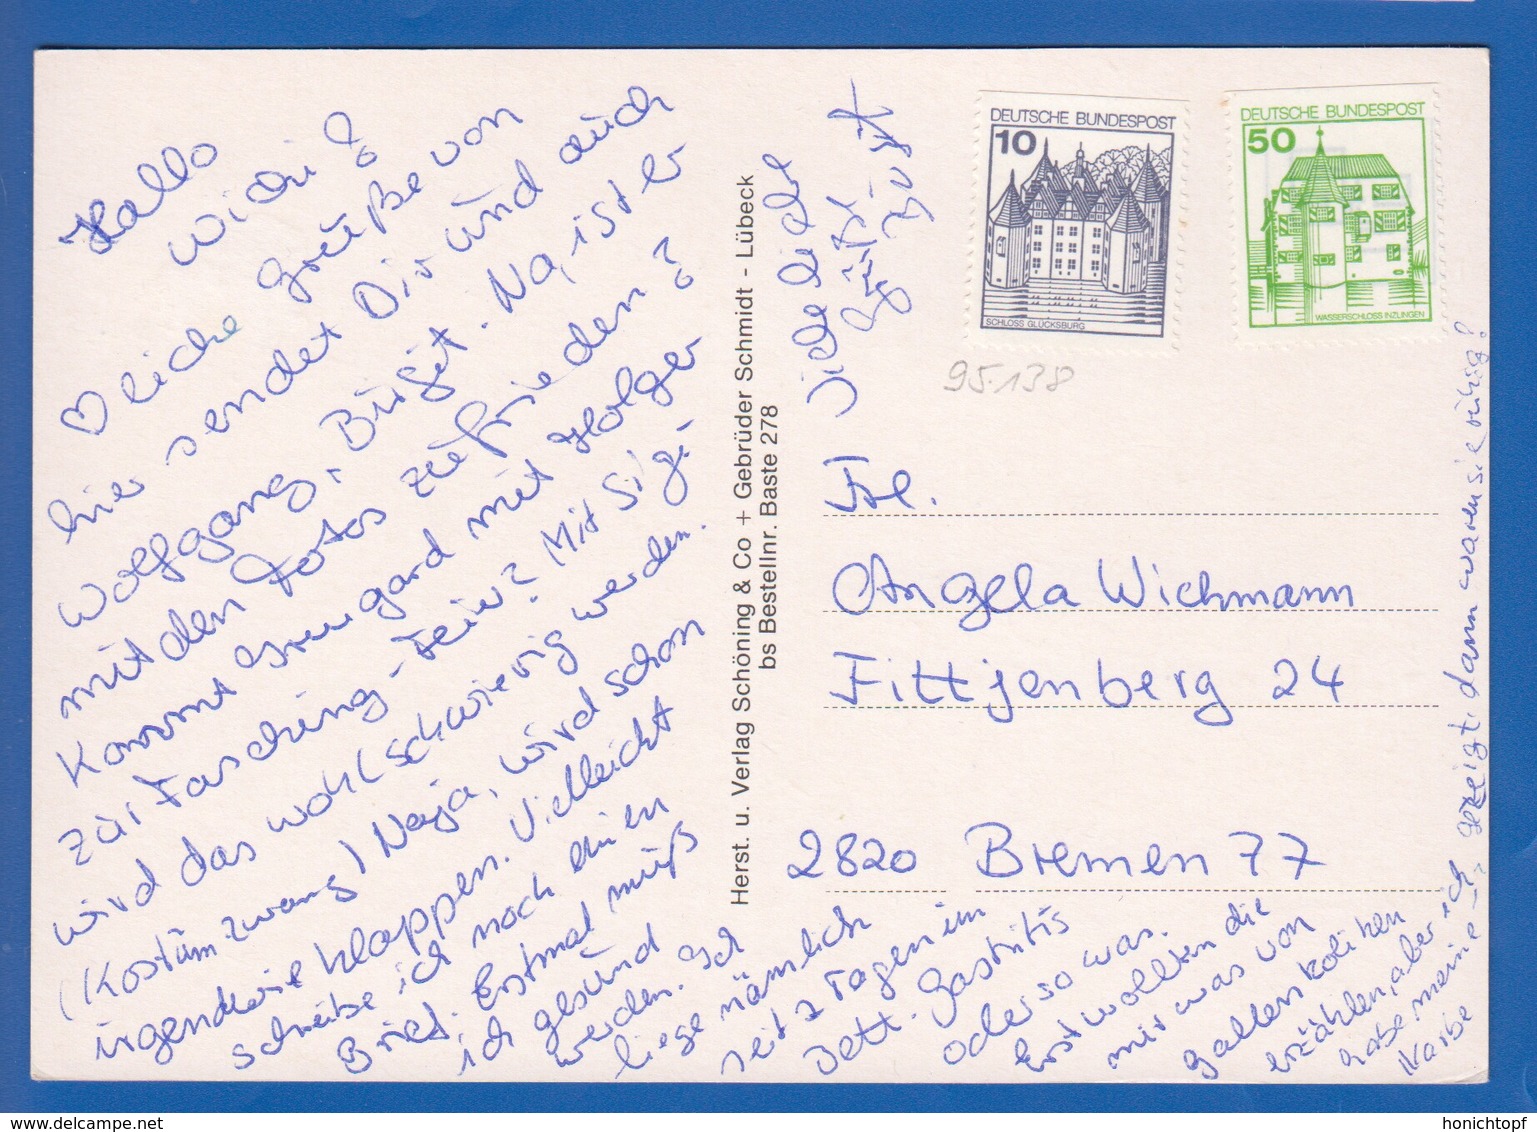 Hallo
Wichi!
♡liche Grüße von
hier sendet Dir und auch
Wolfgang, Birgit. Na, ist er
mit den Fotos zufrieden?
Kommt Irmgard mit Holger
zur Fasching-Feier? Mit Sigi
wird das wohl schwierig werden.
(Kostümzwang) Naja, wird schon
irgendwie klappen. Vielleicht
schreibe ich noch einen
Brief. Erstmal muß
ich gesund
werden. Ich
liege nämlich
seit 2 Tagen im
Bett. Gastritis
oder so was.
Erst wollten die
mir was von
Gallenkoliken
erzählen, aber ich
habe meine
Narbe
gezeigt, dann waren sie ruhig!
Viele liebe
Grüße
Herst. u. Verlag Schöning & Co + Gebrüder Schmidt - Lübeck
bs Bestellnr. Baste 278
DEUTSCHE BUNDESPOST
10
SCHLOSS GLÜCKSBURG
DEUTSCHE BUNDESPOST
50
WASSERSCHLOSS INZLINGEN
95.138
Frl.
Angela Wichmann
Fittjenberg 24
2820 Bremen 77
www.delcampe.net
honichtopf